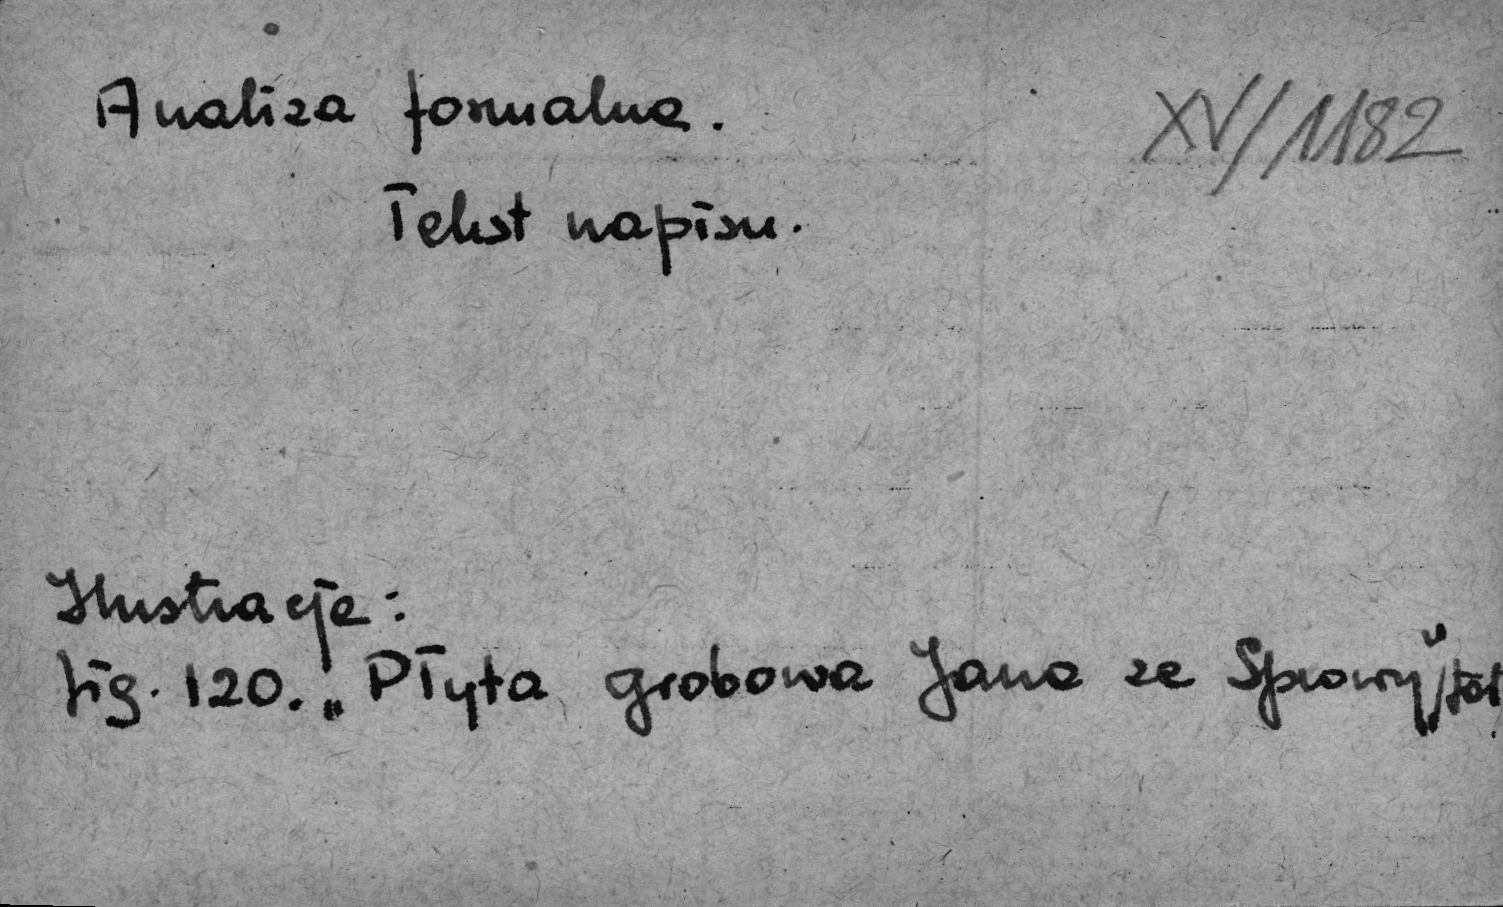 Analiza formalna.
XV/1182
Tekst napisu.
Ilustracje:
fig. 120. „Płyta grobowa Jana ze Sprowy" /fot.